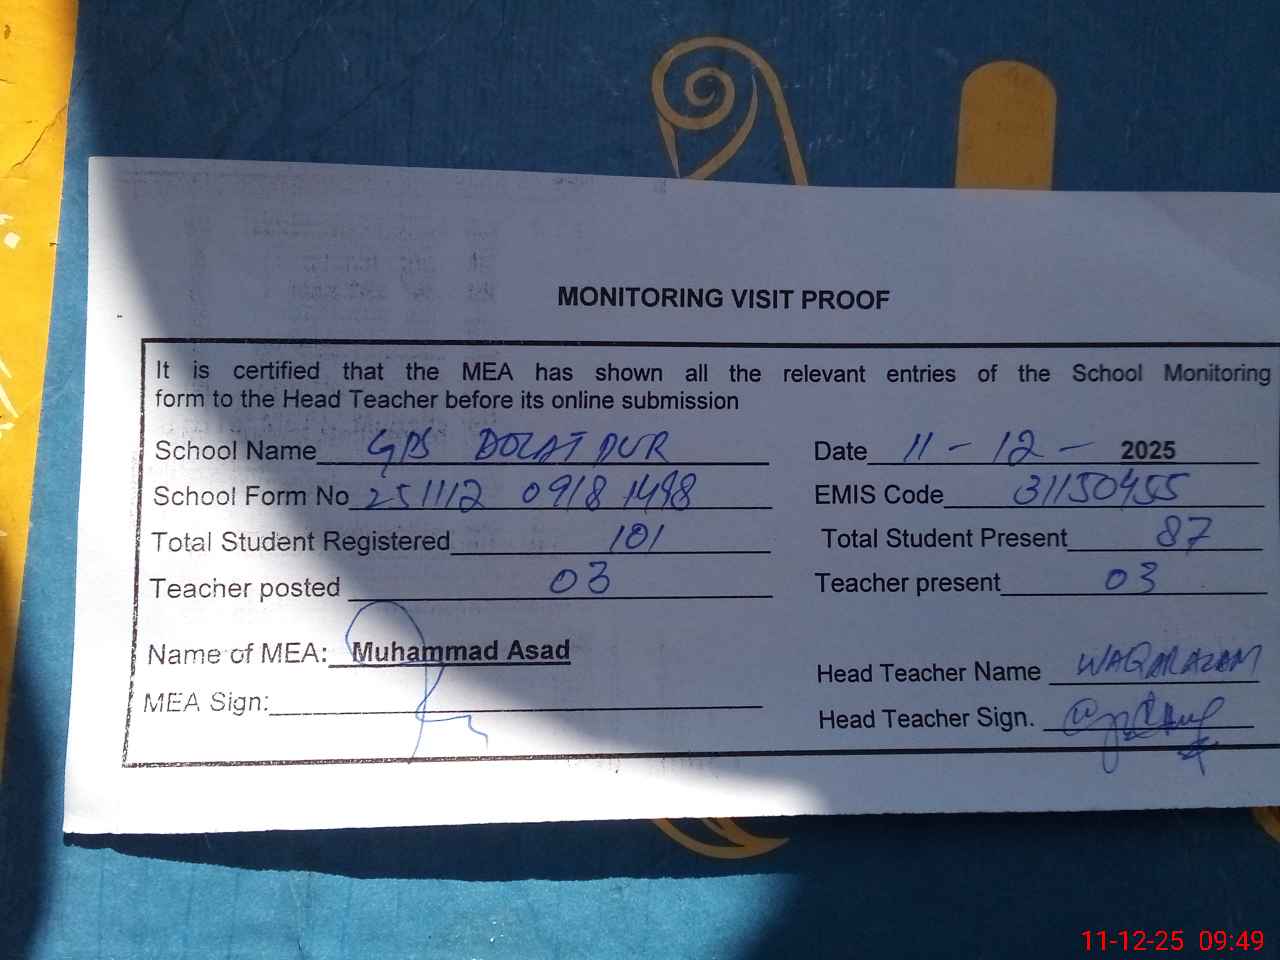 MONITORING VISIT PROOF
It is certified that the MEA has shown all the relevant entries of the School Monitoring
form to the Head Teacher before its online submission
School Name GPS DOLATPUR Date 11 - 12 - 2025
School Form No 251112 0918 1498 EMIS Code 31150455
Total Student Registered 101 Total Student Present 87
Teacher posted 03 Teacher present 03
Name of MEA: Muhammad Asad
Head Teacher Name WAQAR AZAM
MEA Sign:
Head Teacher Sign.
11-12-25 09:49